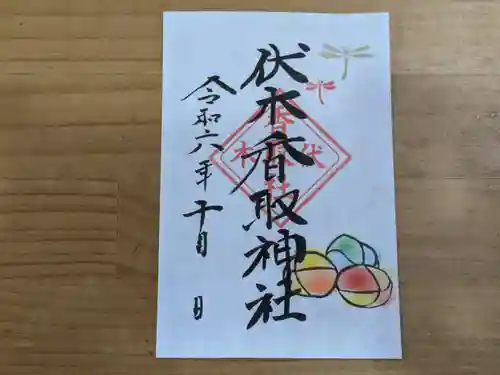 伏木香取神社
令和六年十月 日